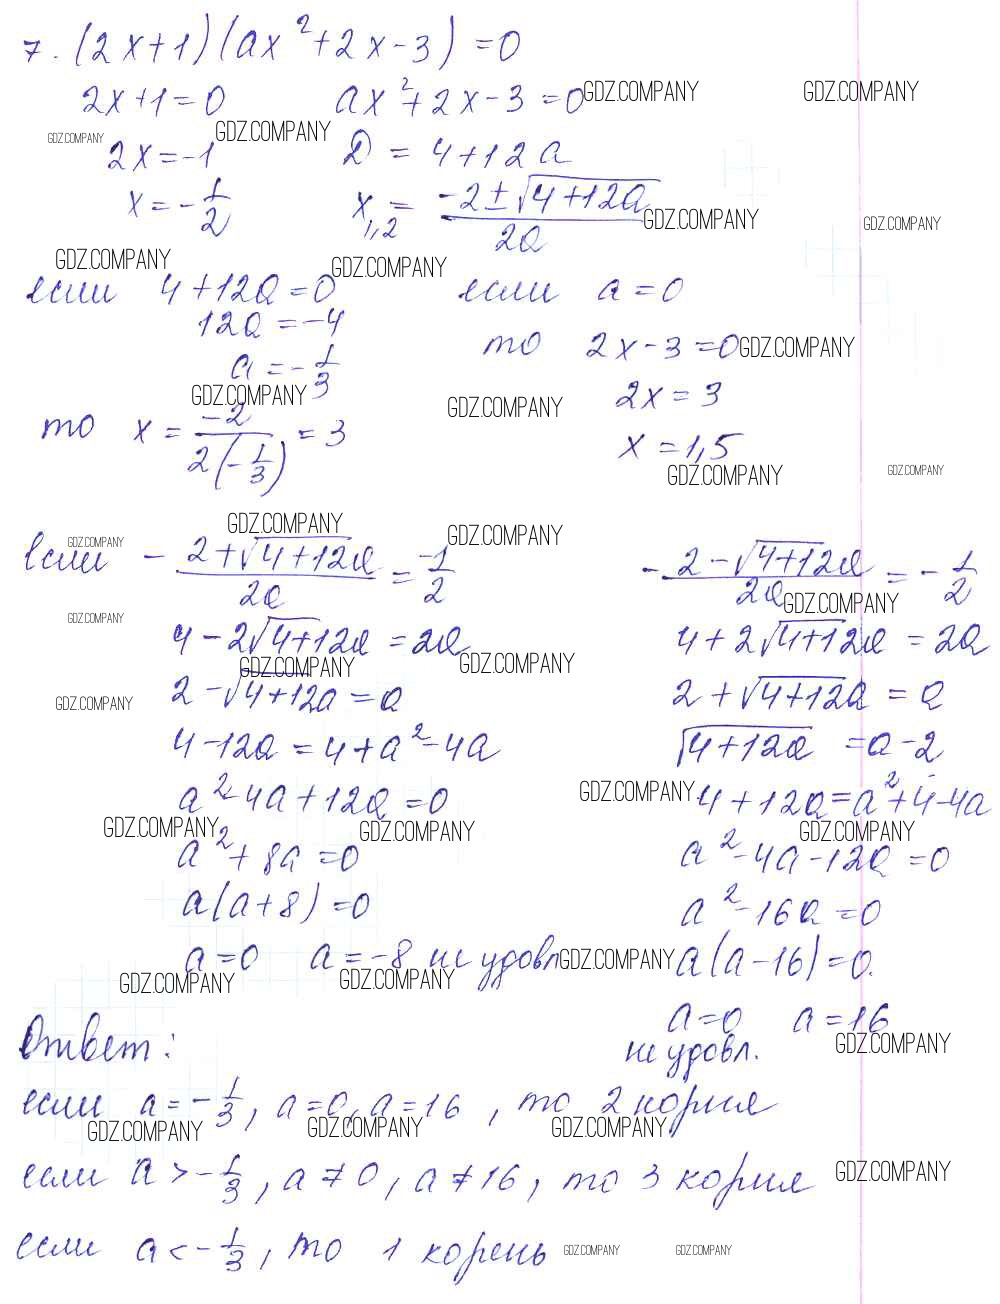 7. (2x+1)(ax²+2x-3)=0
2x+1=0 ax²+2x-3=0 GDZ.COMPANY GDZ.COMPANY
GDZ.COMPANY 2x=-1 GDZ.COMPANY D = 4+12a
x=-1/2 x1,2 = (-2±√(4+12a))/2a GDZ.COMPANY GDZ.COMPANY
GDZ.COMPANY GDZ.COMPANY
если 4+12a=0 если a=0
12a=-4
a=-1/3 то 2x-3=0 GDZ.COMPANY
GDZ.COMPANY GDZ.COMPANY 2x=3
то x = -2/(2(-1/3)) = 3 x=1,5
GDZ.COMPANY GDZ.COMPANY
GDZ.COMPANY GDZ.COMPANY GDZ.COMPANY
если -(2+√(4+12a))/2a = -1/2 -(2-√(4+12a))/2a = -1/2
GDZ.COMPANY GDZ.COMPANY
4-2√(4+12a)=2a 4+2√(4+12a)=2a
GDZ.COMPANY GDZ.COMPANY
GDZ.COMPANY 2-√(4+12a)=a 2+√(4+12a)=a
4-12a=4+a²-4a √(4+12a)=a-2
a²-4a+12a=0 GDZ.COMPANY 4+12a=a²+4-4a
GDZ.COMPANY GDZ.COMPANY GDZ.COMPANY
a²+8a=0 a²-4a-12a=0
a(a+8)=0 a²-16a=0
a=0 a=-8 не удовл GDZ.COMPANY a(a-16)=0.
GDZ.COMPANY GDZ.COMPANY
a=0 a=16
Ответ: не удовл. GDZ.COMPANY
если a=-1/3, a=0, a=16, то 2 корня
GDZ.COMPANY GDZ.COMPANY GDZ.COMPANY
если a>-1/3, a≠0, a≠16, то 3 корня GDZ.COMPANY
если a<-1/3, то 1 корень GDZ.COMPANY GDZ.COMPANY